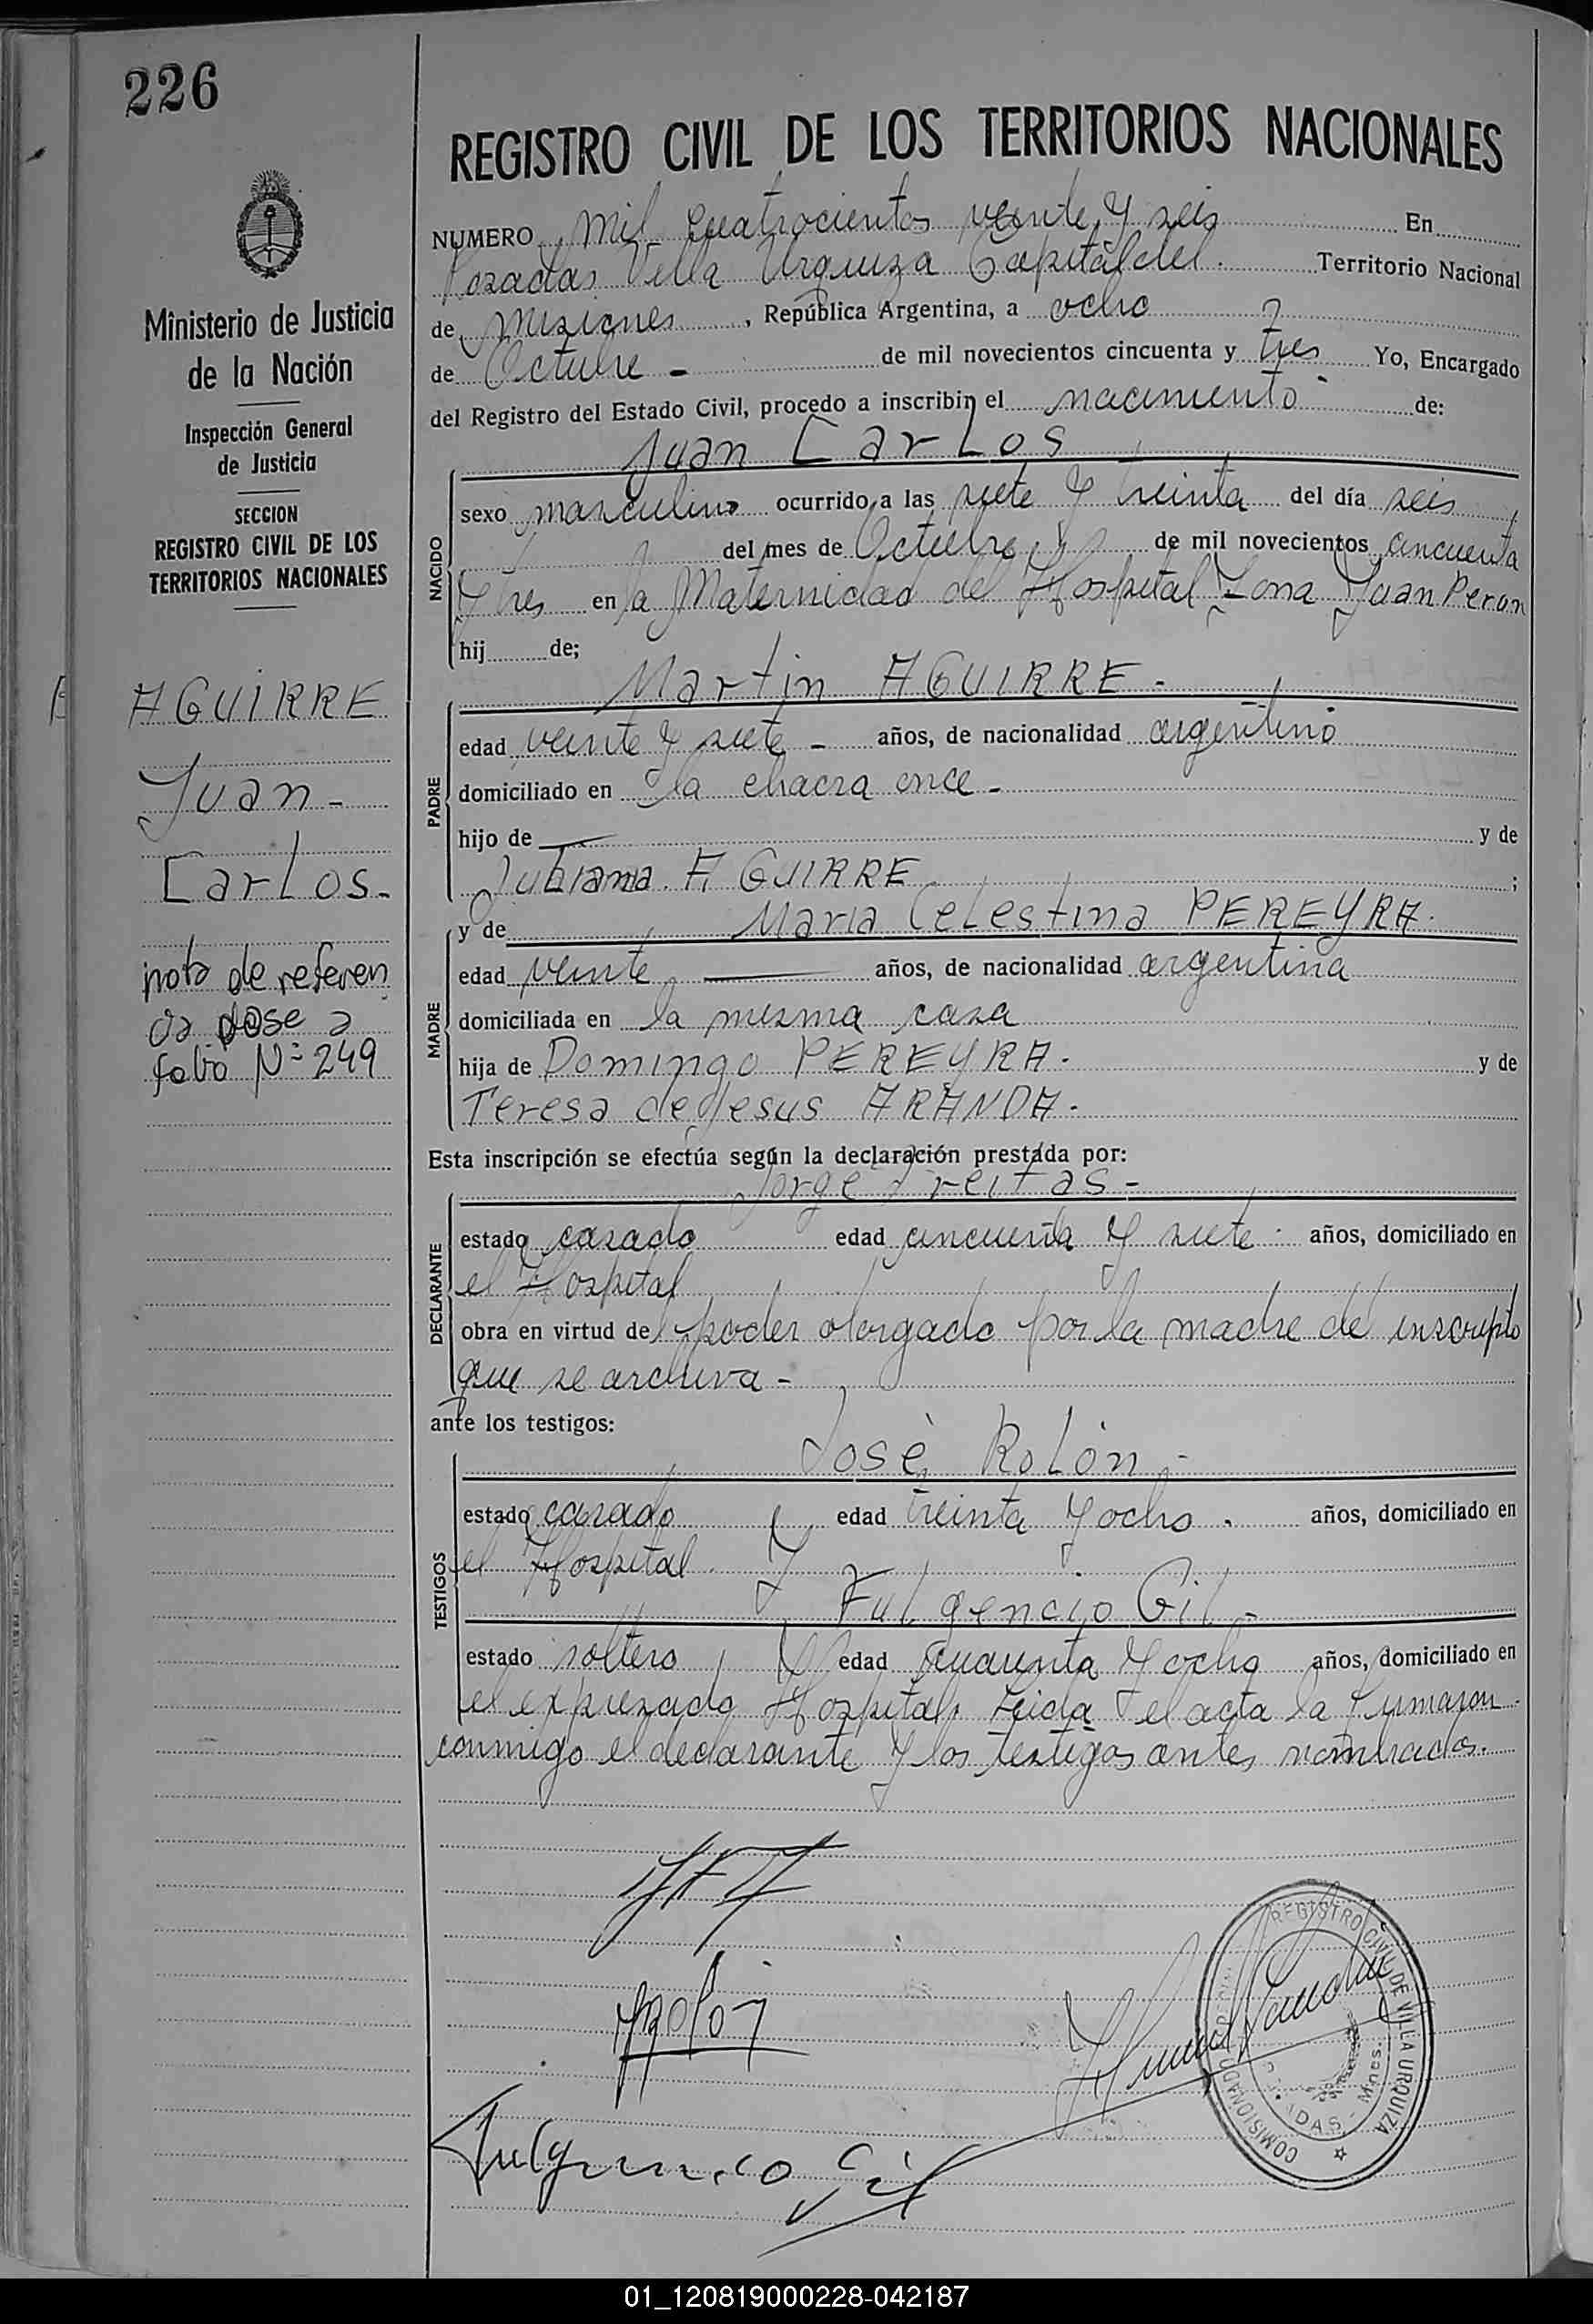 226
REGISTRO CIVIL DE LOS TERRITORIOS NACIONALES
NUMERO mil cuatrocientos veinte y seis En
Posadas Villa Urquiza Capital del Territorio Nacional
de Misiones, República Argentina, a ocho
de Octubre - de mil novecientos cincuenta y tres Yo, Encargado
del Registro del Estado Civil, procedo a inscribir el nacimiento de:
Juan Carlos
NACIDO
sexo masculino ocurrido a las siete y treinta del día seis
del mes de Octubre de mil novecientos cincuenta
y tres en la Maternidad del Hospital Zona Juan Peron
hij de;
Martin AGUIRRE -
PADRE
edad veinte y siete - años, de nacionalidad argentino
domiciliado en la chacra once -
hijo de — y de
AGUIRRE ;
y de Maria Celestina PEREYRA.
MADRE
edad veinte — años, de nacionalidad argentina
domiciliada en la misma casa
hija de Domingo PEREYRA. y de
Teresa de Jesus ARANDA.
Esta inscripción se efectúa según la declaración prestada por:
Jorge Freitas -
DECLARANTE
estado casado edad cincuenta y siete años, domiciliado en
el Hospital
obra en virtud del poder otorgado por la madre del inscripto
que se archiva -
ante los testigos:
José Rolón -
TESTIGOS
estado casado edad treinta y ocho. años, domiciliado en
el Hospital y
Fulgencio Gil -
estado soltero edad cuarenta y ocho años, domiciliado en
el expresado Hospital. Leida el acta la firmaron
conmigo el declarante y los testigos antes nombrados.
Ministerio de Justicia
de la Nación
Inspección General
de Justicia
SECCION
REGISTRO CIVIL DE LOS
TERRITORIOS NACIONALES
AGUIRRE
Juan -
Carlos -
nota de referen
cia pase a
folio Nº 249
Rolón
Fulgencio Gil
REGISTRO CIVIL DE VILLA URQUIZA
Mnes.
01_120819000228-042187